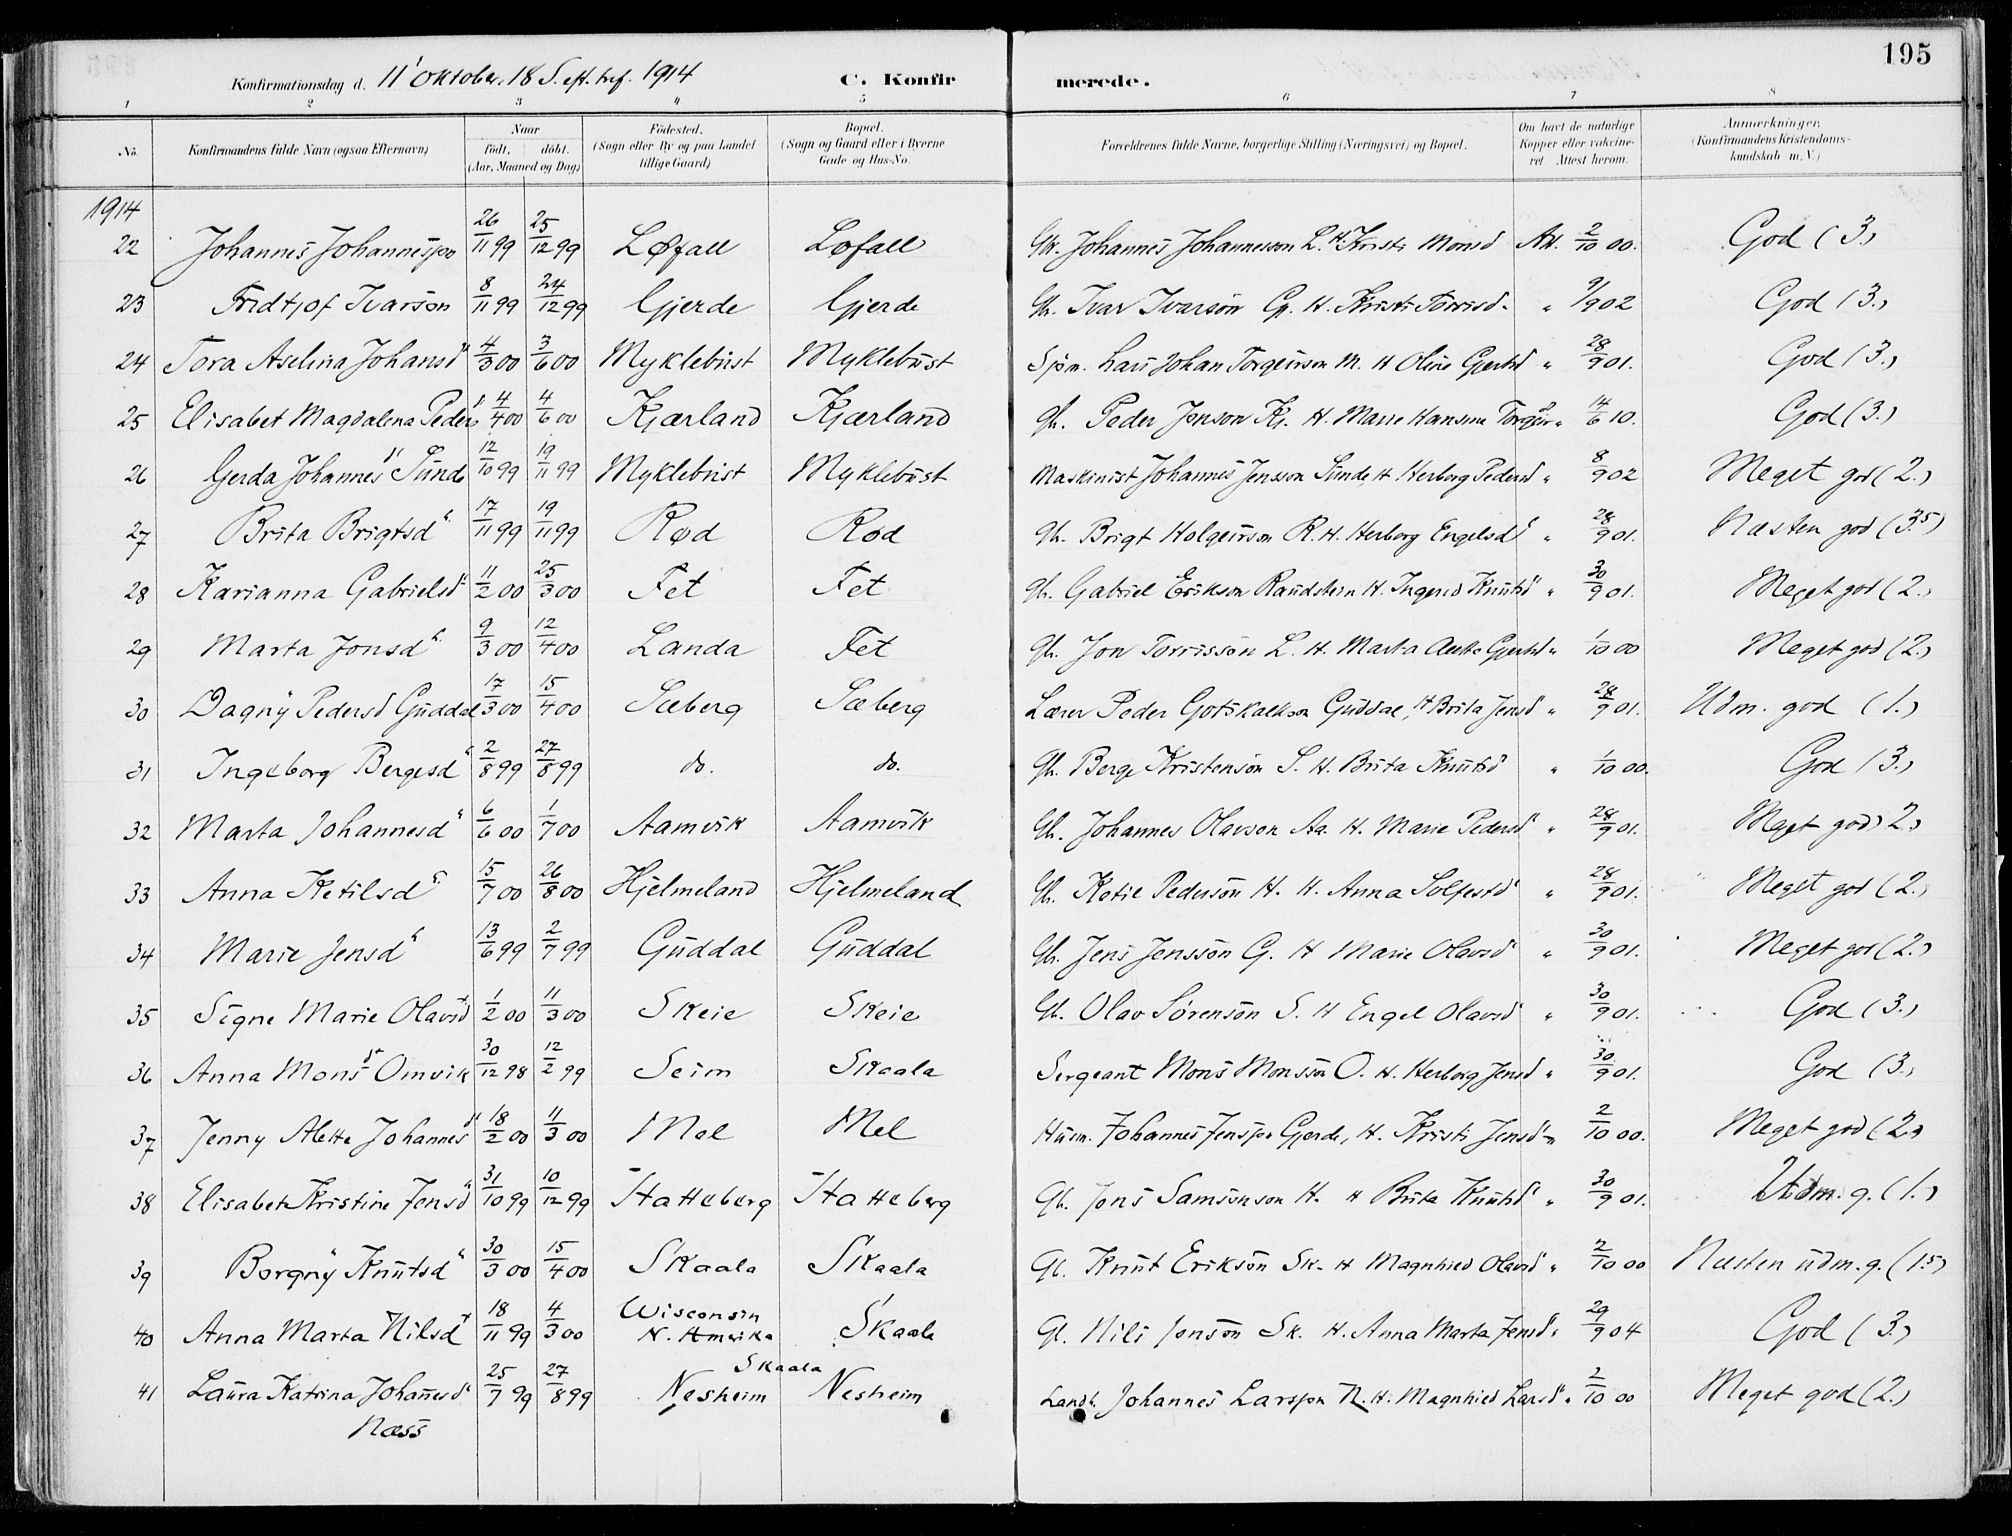 195
Konfirmationsdag d. 11' Oktober. 18 S. eft. tref. 1914 C. Konfirmerede.
1 2 3 4 5 6 7 8
No. Konfirmandens fulde Navn (ogsaa Efternavn) Naar födt. döbt. (Aar, Maaned og Dag) Födested. (Sogn eller By og paa Landet tillige Gaard) Bopæl. (Sogn og Gaard eller i Byerne Gade og Hus-No. Forældrenes fulde Navne, borgerlige Stilling (Næringsvei) og Bopæl. Om havt de naturlige Kopper eller vaccineret. Attest herom. Anmærkninger. (Konfirmandens Kristendomskundskab m. V.)
1914
22 Johannes Johannesson 26/11 99 25/12 99 Løfall Løfall Gbr. Johannes Johannesson L. H Kristi Monsd Att. 2/10 00. God (3.)
23 Fridtjof Ivarson 8/11 99 24/12 99 Gjerde Gjerde Gb. Ivar Ivarsön Gj. H. Kristi Torrisd. " 9/9 02 God (3.)
24 Tora Aselina Johansd 4/3 00 3/6 00 Myklebust Myklebust Sjöm. Lars Johan Torgeirson M. H Oline Gjertsd " 28/9 01. God (3.)
25 Elisabet Magdalena Peders 4/4 00 4/6 00 Kjærland Kjærland Gb. Peder Jonson Kj. H. Marie Hansine " 14/6 10. God (3.)
26 Gerda Johannesd Sunde 12/10 99 19/11 99 Myklebust Myklebust Maskinist Johannes Jensson Sunde, H Herborg Pedersd " 8/9 02 Meget god (2.)
27 Brita Brigtsd 17/11 99 19/11 99 Rød Rød Gb. Brigt Holgeirson R. H. Herborg Engelsd " 28/9 01. Næsten god (3.5)
28 Karianna Gabrielsd 11/2 00 25/3 00 Fet Fet Gb. Gabriel Erikson Raudstein H. Ingerid Knutsd " 30/9 01. Meget god (2.)
29 Marta Jonsd 9/3 00 12/4 00 Landa Fet Gb. Jon Torrisson L. H. Marta Gjertsd " 1/10 00 Meget god (2.)
30 Dagny Pedersd Guddal 17/3 00 15/4 00 Sæberg Sæberg Lærer Peder Gotskalkson Guddal, H Brita Jensd " 28/9 01. Udm. god (1.)
31 Ingeborg Bergesd 2/8 99 27/8 99 do. do. Gb. Berge Kristensön S. H. Brita Knutsd " 1/10 00. God (3.)
32 Marta Johannesd 6/6 00 1/7 00 Aamvik Aamvik Gb. Johannes Olavson Aa. H. Marie Pedersd " 28/9 01. Meget god 2.)
33 Anna Ketilsd 15/7 00 26/8 00 Hjelmeland Hjelmeland Gb. Ketil Pedersön H. H. Anna Solfestd " 28/9 01. Meget god (2.)
34 Marie Jensd 13/6 99 2/7 99 Guddal Guddal Gb. Jens Jenssön G. H Marie Olavsd " 30/9 01. Meget god (2.)
35 Signe Marie Olavsd 1/2 00 11/3 00 Skeie Skeie Gb. Olav Sørensön S. H Engel Olavsd " 30/9 01. God (3.)
36 Anna Monsdt Omvik 30/12 98 12/2 99 Seim Skaala Sergeant Mons Monsson O. H. Herborg Jensd " 30/9 01. God (3.)
37 Jenny Alette Johannesd 18/2 00 11/3 00 Mel Mel Husm. Johannes Jensson Gjerde, H. Kristi Jensd " 2/10 00. Meget god (2.)
38 Elisabet Kristine Jensd 31/10 99 10/12 99 Hatteberg Hatteberg Gb. Jens Samsonson H. H Brita Knutsd " 30/9 01. Udm. g. (1.)
39 Borgny Knutsd 30/3 00 15/4 00 Skaala Skaala Gb. Knut Eriksön Sk. H Magnhied Olavsd " 2/10 00 Næsten udm. g. (1.5)
40 Anna Marta Nilsd 18/11 99 4/3 00 Wisconsin N. Amerika Skaala Gb. Nils Jonsön Sk. H. Anna Marta Jensd " 29/9 04 God (3.)
41 Laura Katrina Johannesd Næss 25/7 99 27/8 99 Skaala Nesheim Nesheim Landh. Johannes Larsson N. H. Magnhied Larsd " 2/10 00 Meget god (2.)